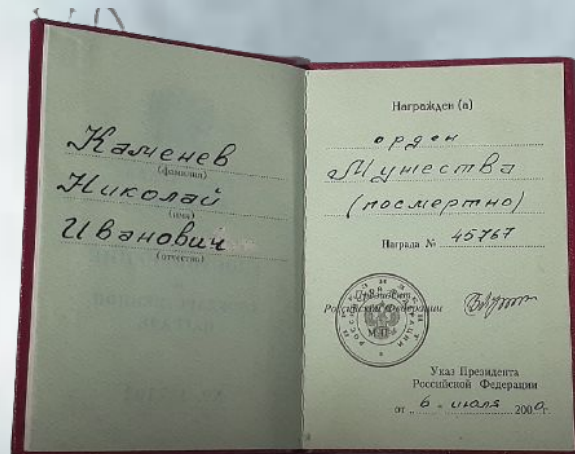 Каменев
(фамилия)
Николай
(имя)
Иванович
(отчество)
Награжден (а)
орден
Мужества
(посмертно)
Награда № 45767
Президент
Российской Федерации
М.П.
Указ Президента
Российской Федерации
от „6 “ июля 2000г.